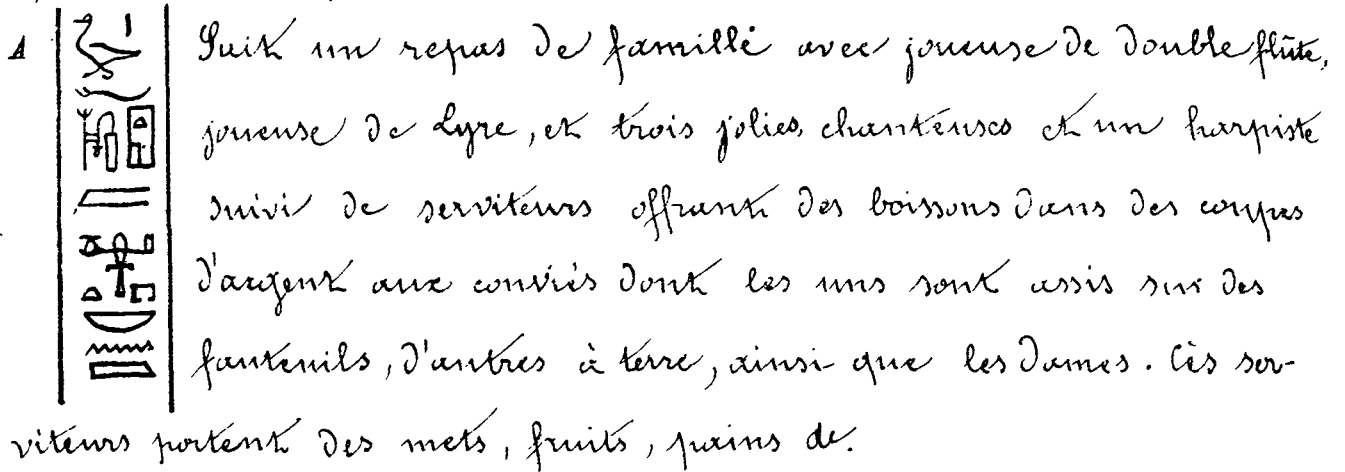 1 Suit un repas de famille avec joueuse de double flûte,
joueuse de Lyre, et trois jolies chanteuses et un harpiste
suivi de serviteurs offrant des boissons dans des coupes
d'argent aux conviés dont les uns sont assis sur des
fauteuils, d'autres à terre, ainsi que les dames. Ces ser-
viteurs portent des mets, fruits, pains &c.